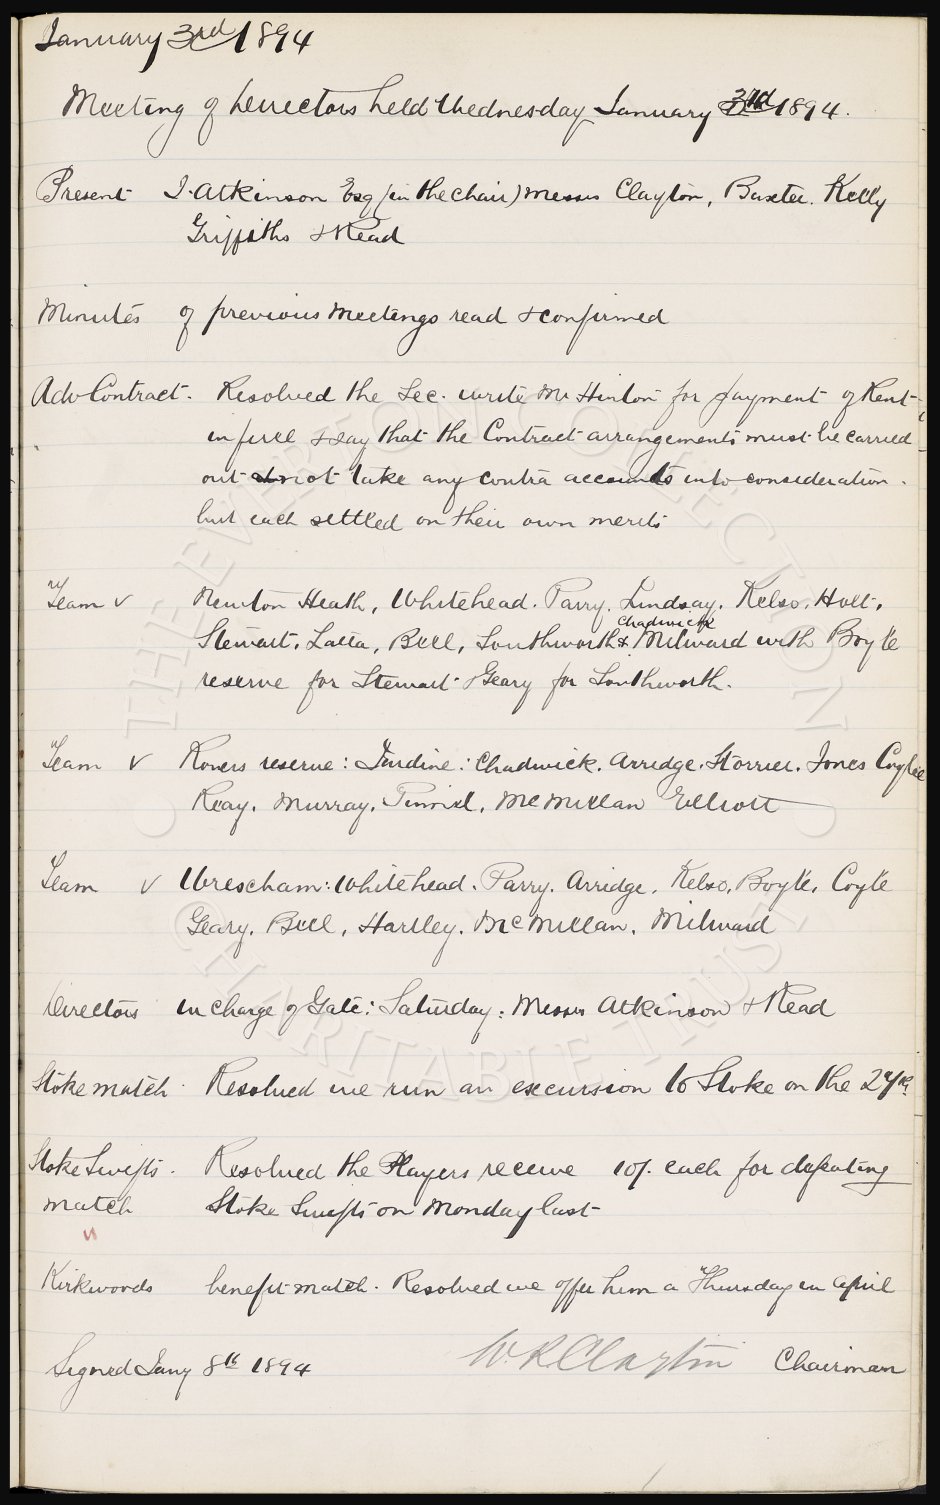 January 3rd 1894
Meeting of Directors held Wednesday January 3rd 1894.
Present J. Atkinson Esq (in the chair) Messrs Clayton, Baxter. Kelly
Griffiths & Read
Minutes of previous Meetings read & confirmed
Adv Contract. Resolved the Sec. write Mr Hinton for payment of Rent
in full & say that the Contract arrangements must be carried
out not take any contra accounts into consideration.
but each settled on their own merits
Team v Newton Heath, Whitehead. Parry. Lindsay. Kelso. Holt.
Chadwick
Stewart. Latta, Bell, Southworth & Milward with Boyle
reserve for Stewart & Geary for Southworth.
Team v Rovers reserve: Jardine: Chadwick. Arridge. Storrier. Jones Coyle
Reay. Murray. McMillan Elliott
Team v Wrexham: Whitehead. Parry. Arridge. Kelso. Boyle. Coyle
Geary. Bell, Hartley. McMillan. Milward
Directors in charge of Gate: Saturday: Messrs Atkinson & Read
Stoke match. Resolved we run an excursion to Stoke on the 27th
Stoke Swifts. Resolved the Players receive 10/. each for defeating
match Stoke Swifts on Monday last
Kirkwoods benefit match. Resolved we offer him a Thursday in April
Signed Jany 8th 1894 W. R Clayton Chairman
THE EVERTON COLLECTION
CHARITABLE TRUST